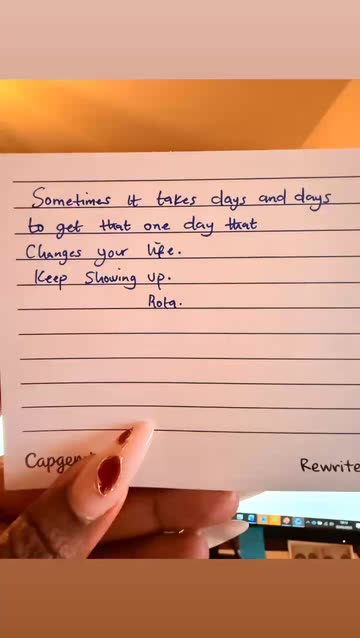 Sometimes It takes days and days
to get that one day that
Changes your life.
Keep Showing up.
Rota.
Rewrite